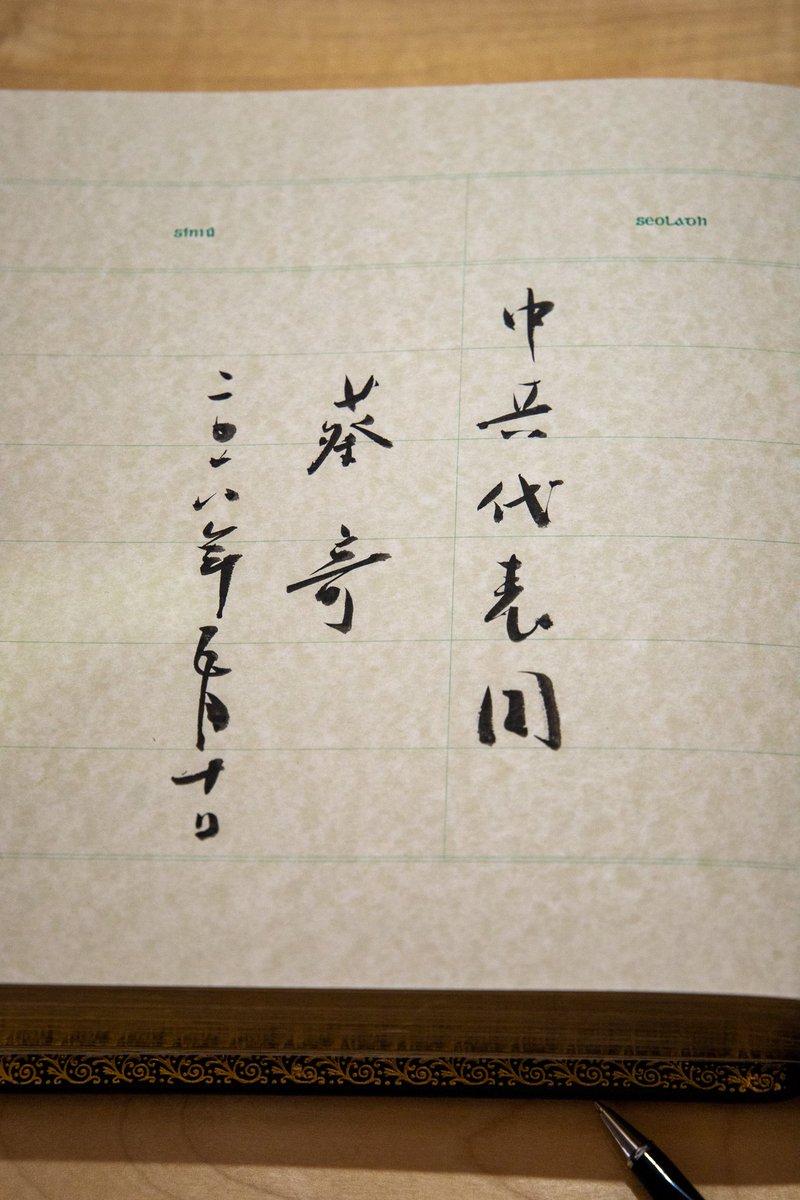 síniú
seoladh
中共代表团
蔡奇
二〇一八年五月十日